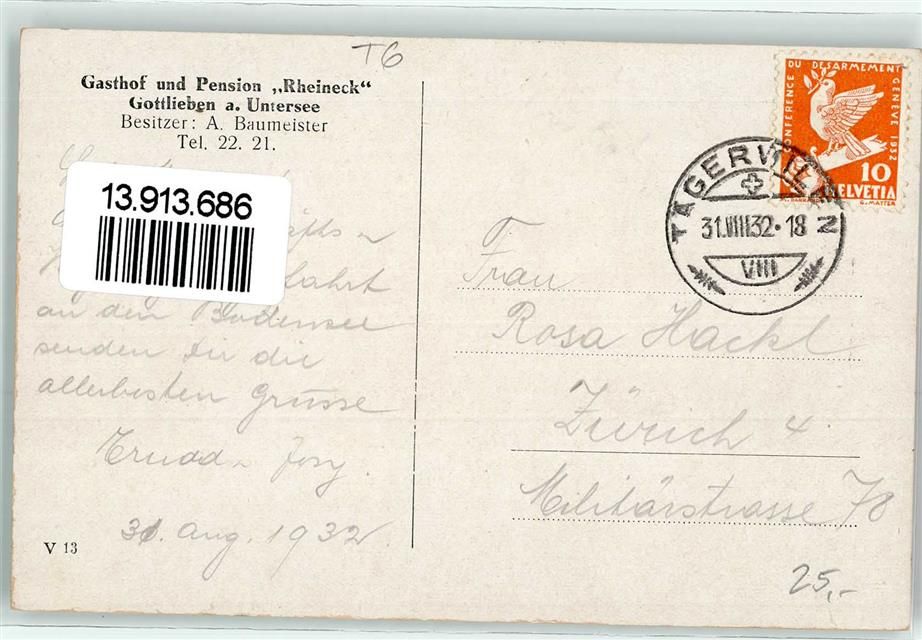 T6
Gasthof und Pension „Rheineck“
Gottlieben a. Untersee
Besitzer: A. Baumeister
Tel. 22. 21.
13.913.686
an den Bodensee
senden dir die
allerbesten Grüsse
Trudd u Josy.
31. Aug. 1932
V 13
CONFERENCE DU DESARMEMENT GENEVE 1932
10
HELVETIA
TÄGERWILEN
31.VIII.32·18
VIII
Frau
Rosa Hackl
Zürich 4.
Militärstrasse 78
25,-